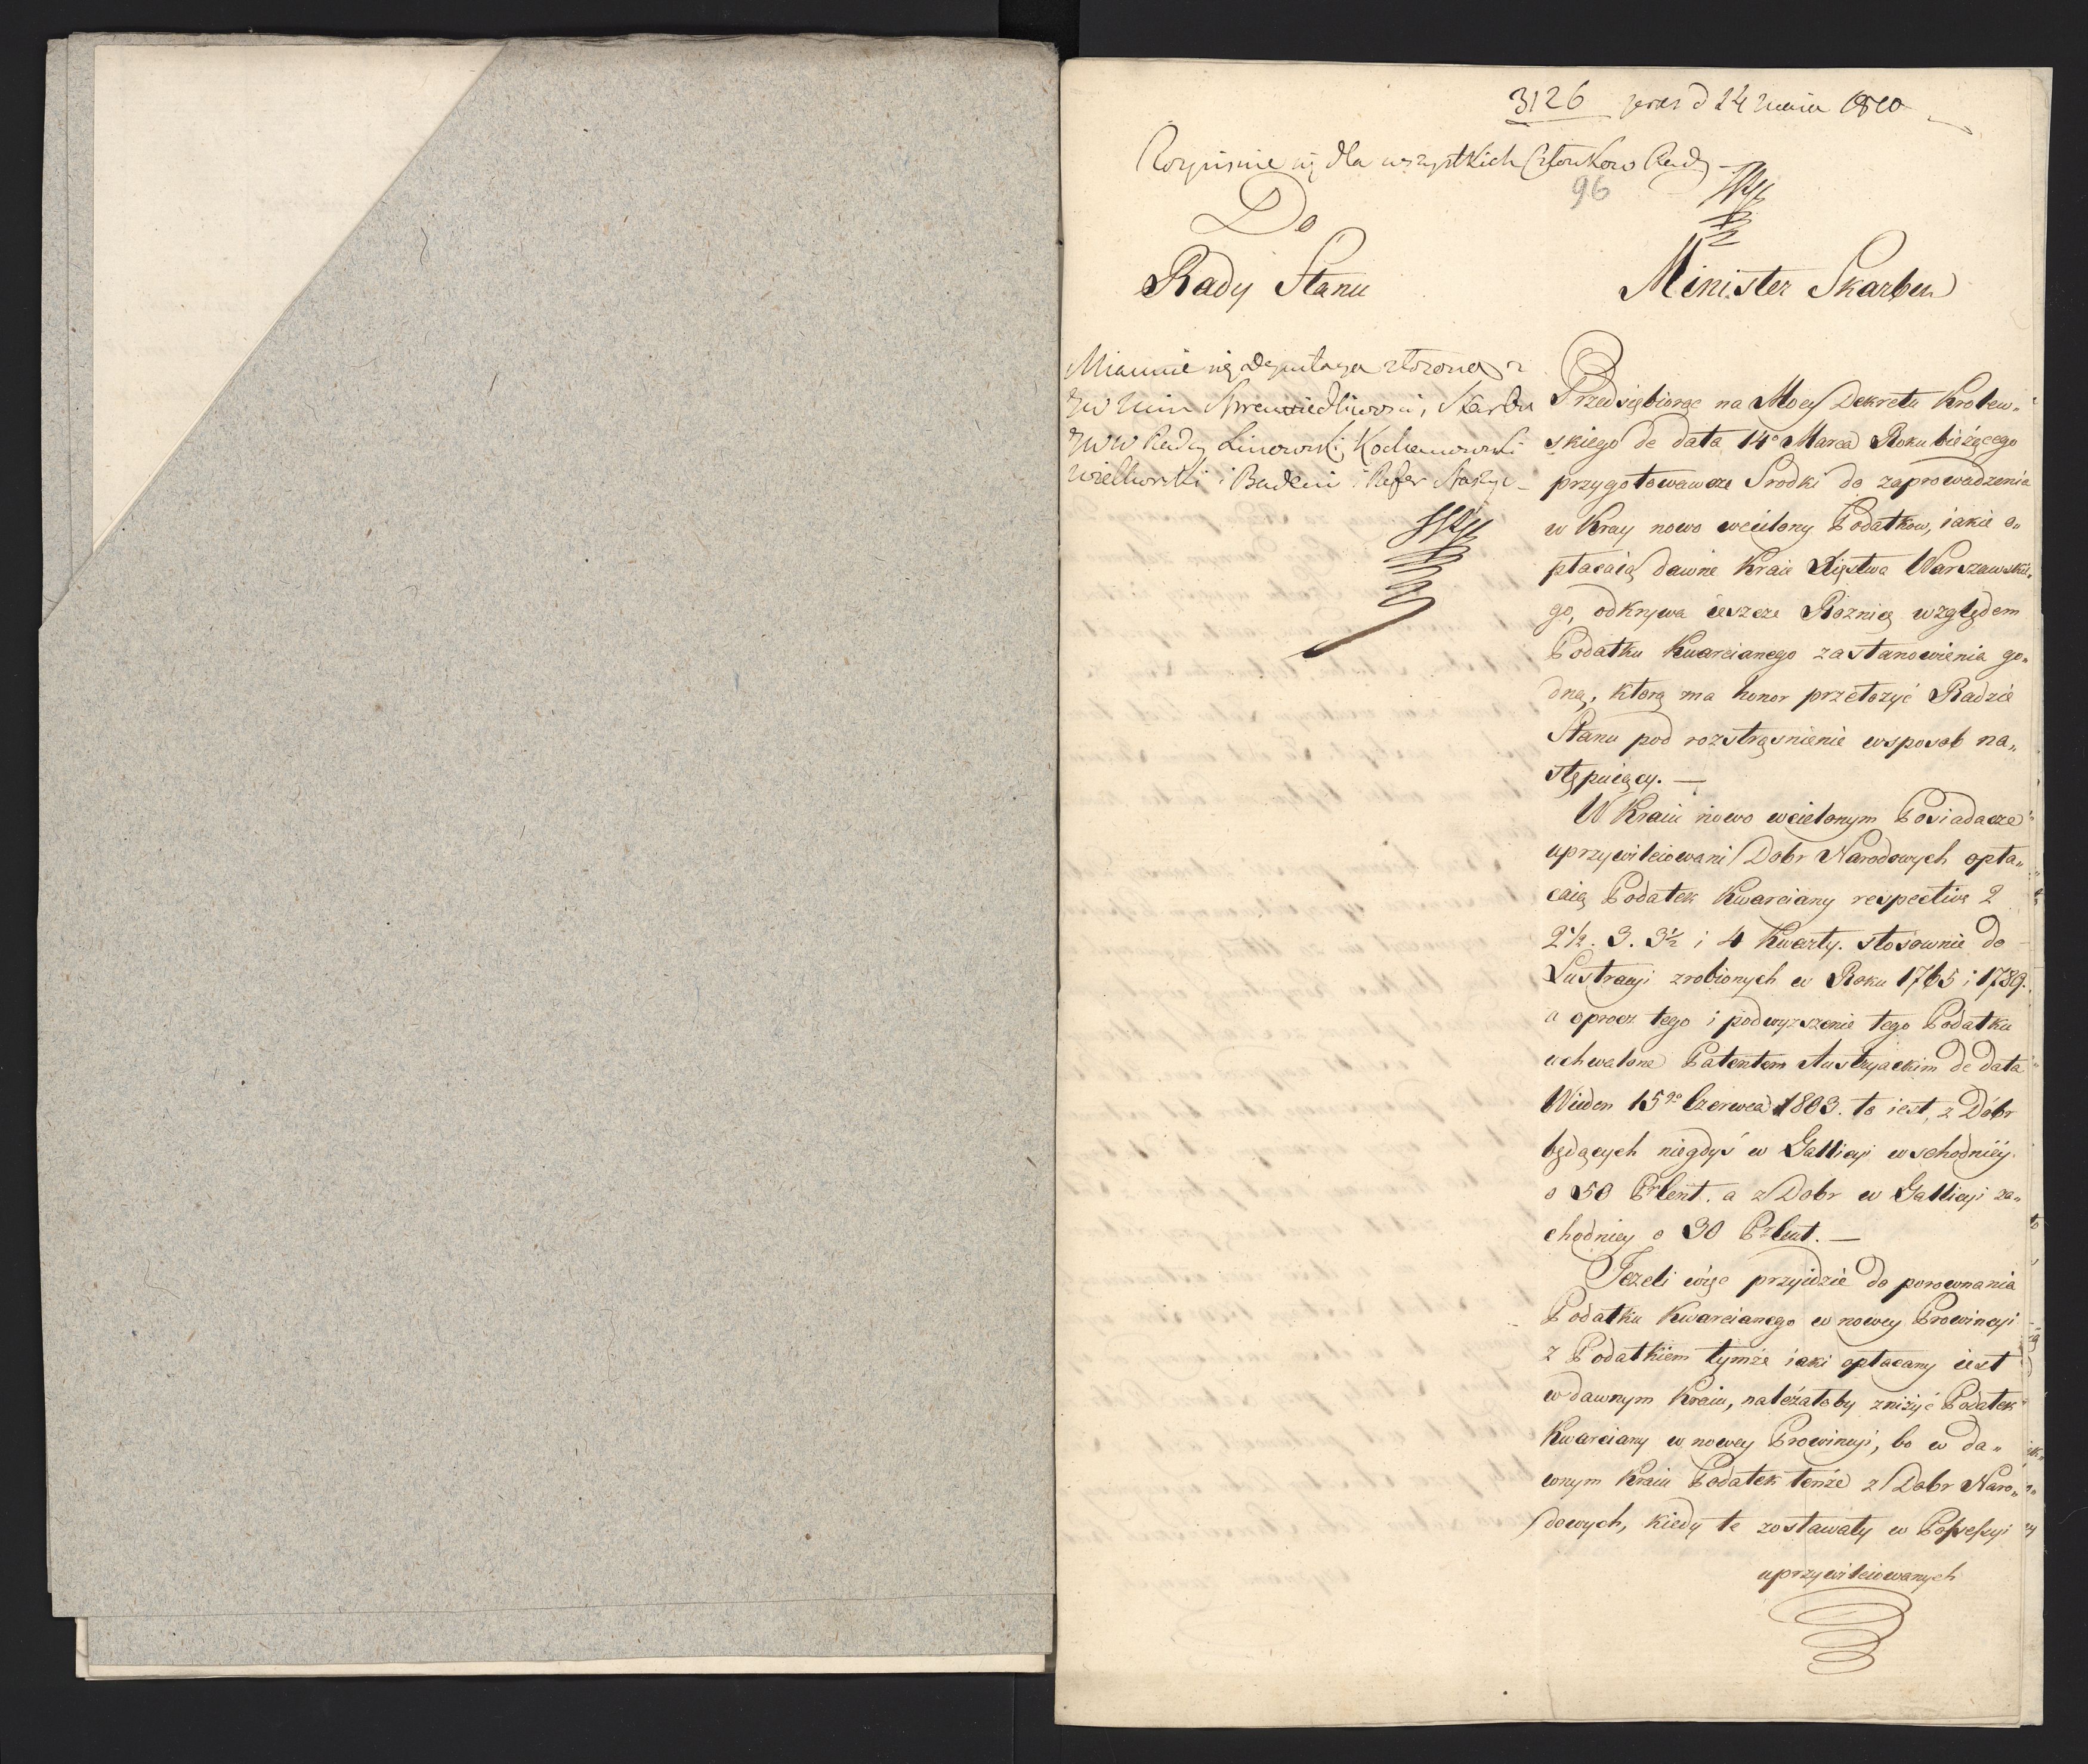 3126 pres d 24 Maia 1810
Rozpisuie się dla wszystkich Członkow Rady
96
Do
Rady Stanu
Minister Skarbu
Mianuie się Deputacya złożona z
JW Min Sprawiedliwosci, Skarbu
JWW Radcy Linowski, Kochanowski
Wielhorski i Badeni i Refer Staszyc
Przedsiębiorąc na Mocy Dekretu Krolew„
skiego de data 14º Marca Roku bieżącego
przygotowawcze Srodki do zaprowadzenia
w Kray nowo wcielony Podatkow, iakie o„
płacaią dawne Kraie Xięstwa Warszawskie„
go, odkrywa ieszcze Roznicę względem
Podatku Kwarcianego zastanowienia go„
dną, ktorą ma honor przełozyć Radzie
Stanu pod rozstrząsnienie wsposob na„
stępuiący. —
W Kraiu nowo wcielonym Posiadacze
uprzywileiowani Dobr Narodowych opła„
caią Podatek Kwarciany respective 2
2½. 3. 3½ i 4 Kwarty. stosownie do
Lustracyi zrobionych w Roku 1765 i 1789.
a oprocz tego i podwyzszenie tego Podatku
uchwalone Patentem Austryackim de data
Wieden 15go Czerwca 1803. to iest, z Dóbr
będących niegdyś w Gallicyi wschodniey
o 50 PrCent. a z Dobr w Gallicyi za„
chodniey o 30 PrCent. —
Jezeli więc przyidzie do porownania
Podatku Kwarcianego w nowey Prowincyi
z Podatkiem tymże iaki opłacany iest
w dawnym Kraiu, należałoby zniżyć Podatek
Kwarciany w nowey Prowincyi, bo w da„
wnym Kraiu Podatek tenże z Dobr Naro„
dowych, kiedy te zostawały w Possessyi
uprzywileiowanych